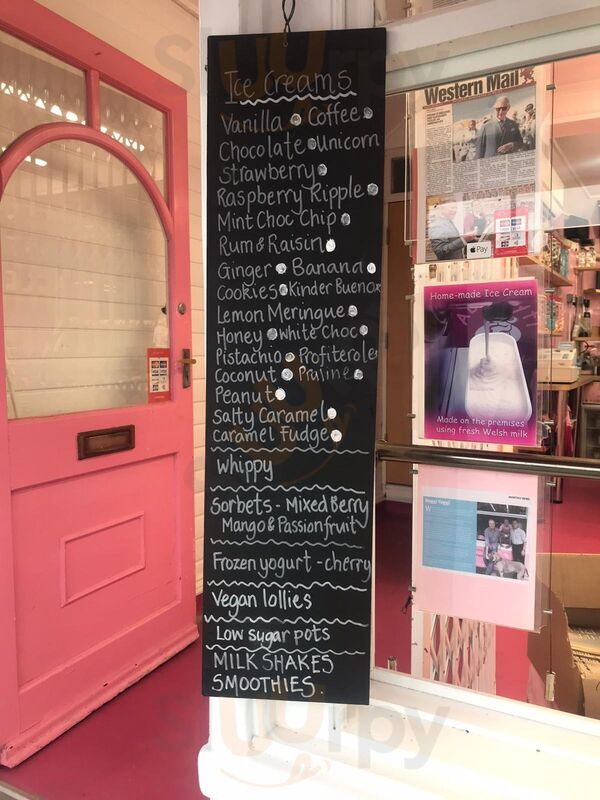 Ice Creams
Vanilla Coffee
Chocolate Unicorn
Strawberry
Raspberry Ripple
Mint Choc Chip
Rum & Raisin
Ginger Banana
Cookies Kinder Bueno
Lemon Meringue
Honey White Choc
Pistachio Profiterole
Coconut Praline
Peanut
Salty Caramel
Caramel Fudge
Whippy
Sorbets - Mixed Berry
Mango & Passionfruit
Frozen yogurt - cherry
Vegan lollies
Low sugar pots
MILK SHAKES
SMOOTHIES
Western Mail
Pay
Home-made Ice Cream
Made on the premises
using fresh Welsh milk
Sluurpy